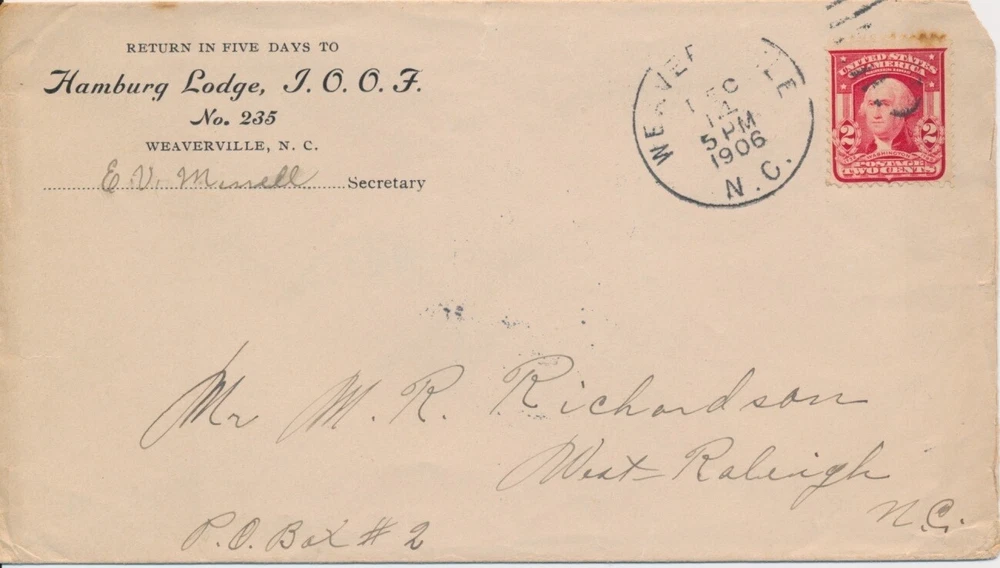 RETURN IN FIVE DAYS TO
Hamburg Lodge, I. O. O. F.
No. 235
WEAVERVILLE, N. C.
E. V. Secretary
WEAVER LLE
DEC
5 PM
1906
N. C.
UNITED STATES
OF AMERICA
SERIES 1902
2 2
WASHINGTON
POSTAGE
TWO CENTS
Mr M. R. Richardson
West Raleigh
N.C.
P.O. Box # 2